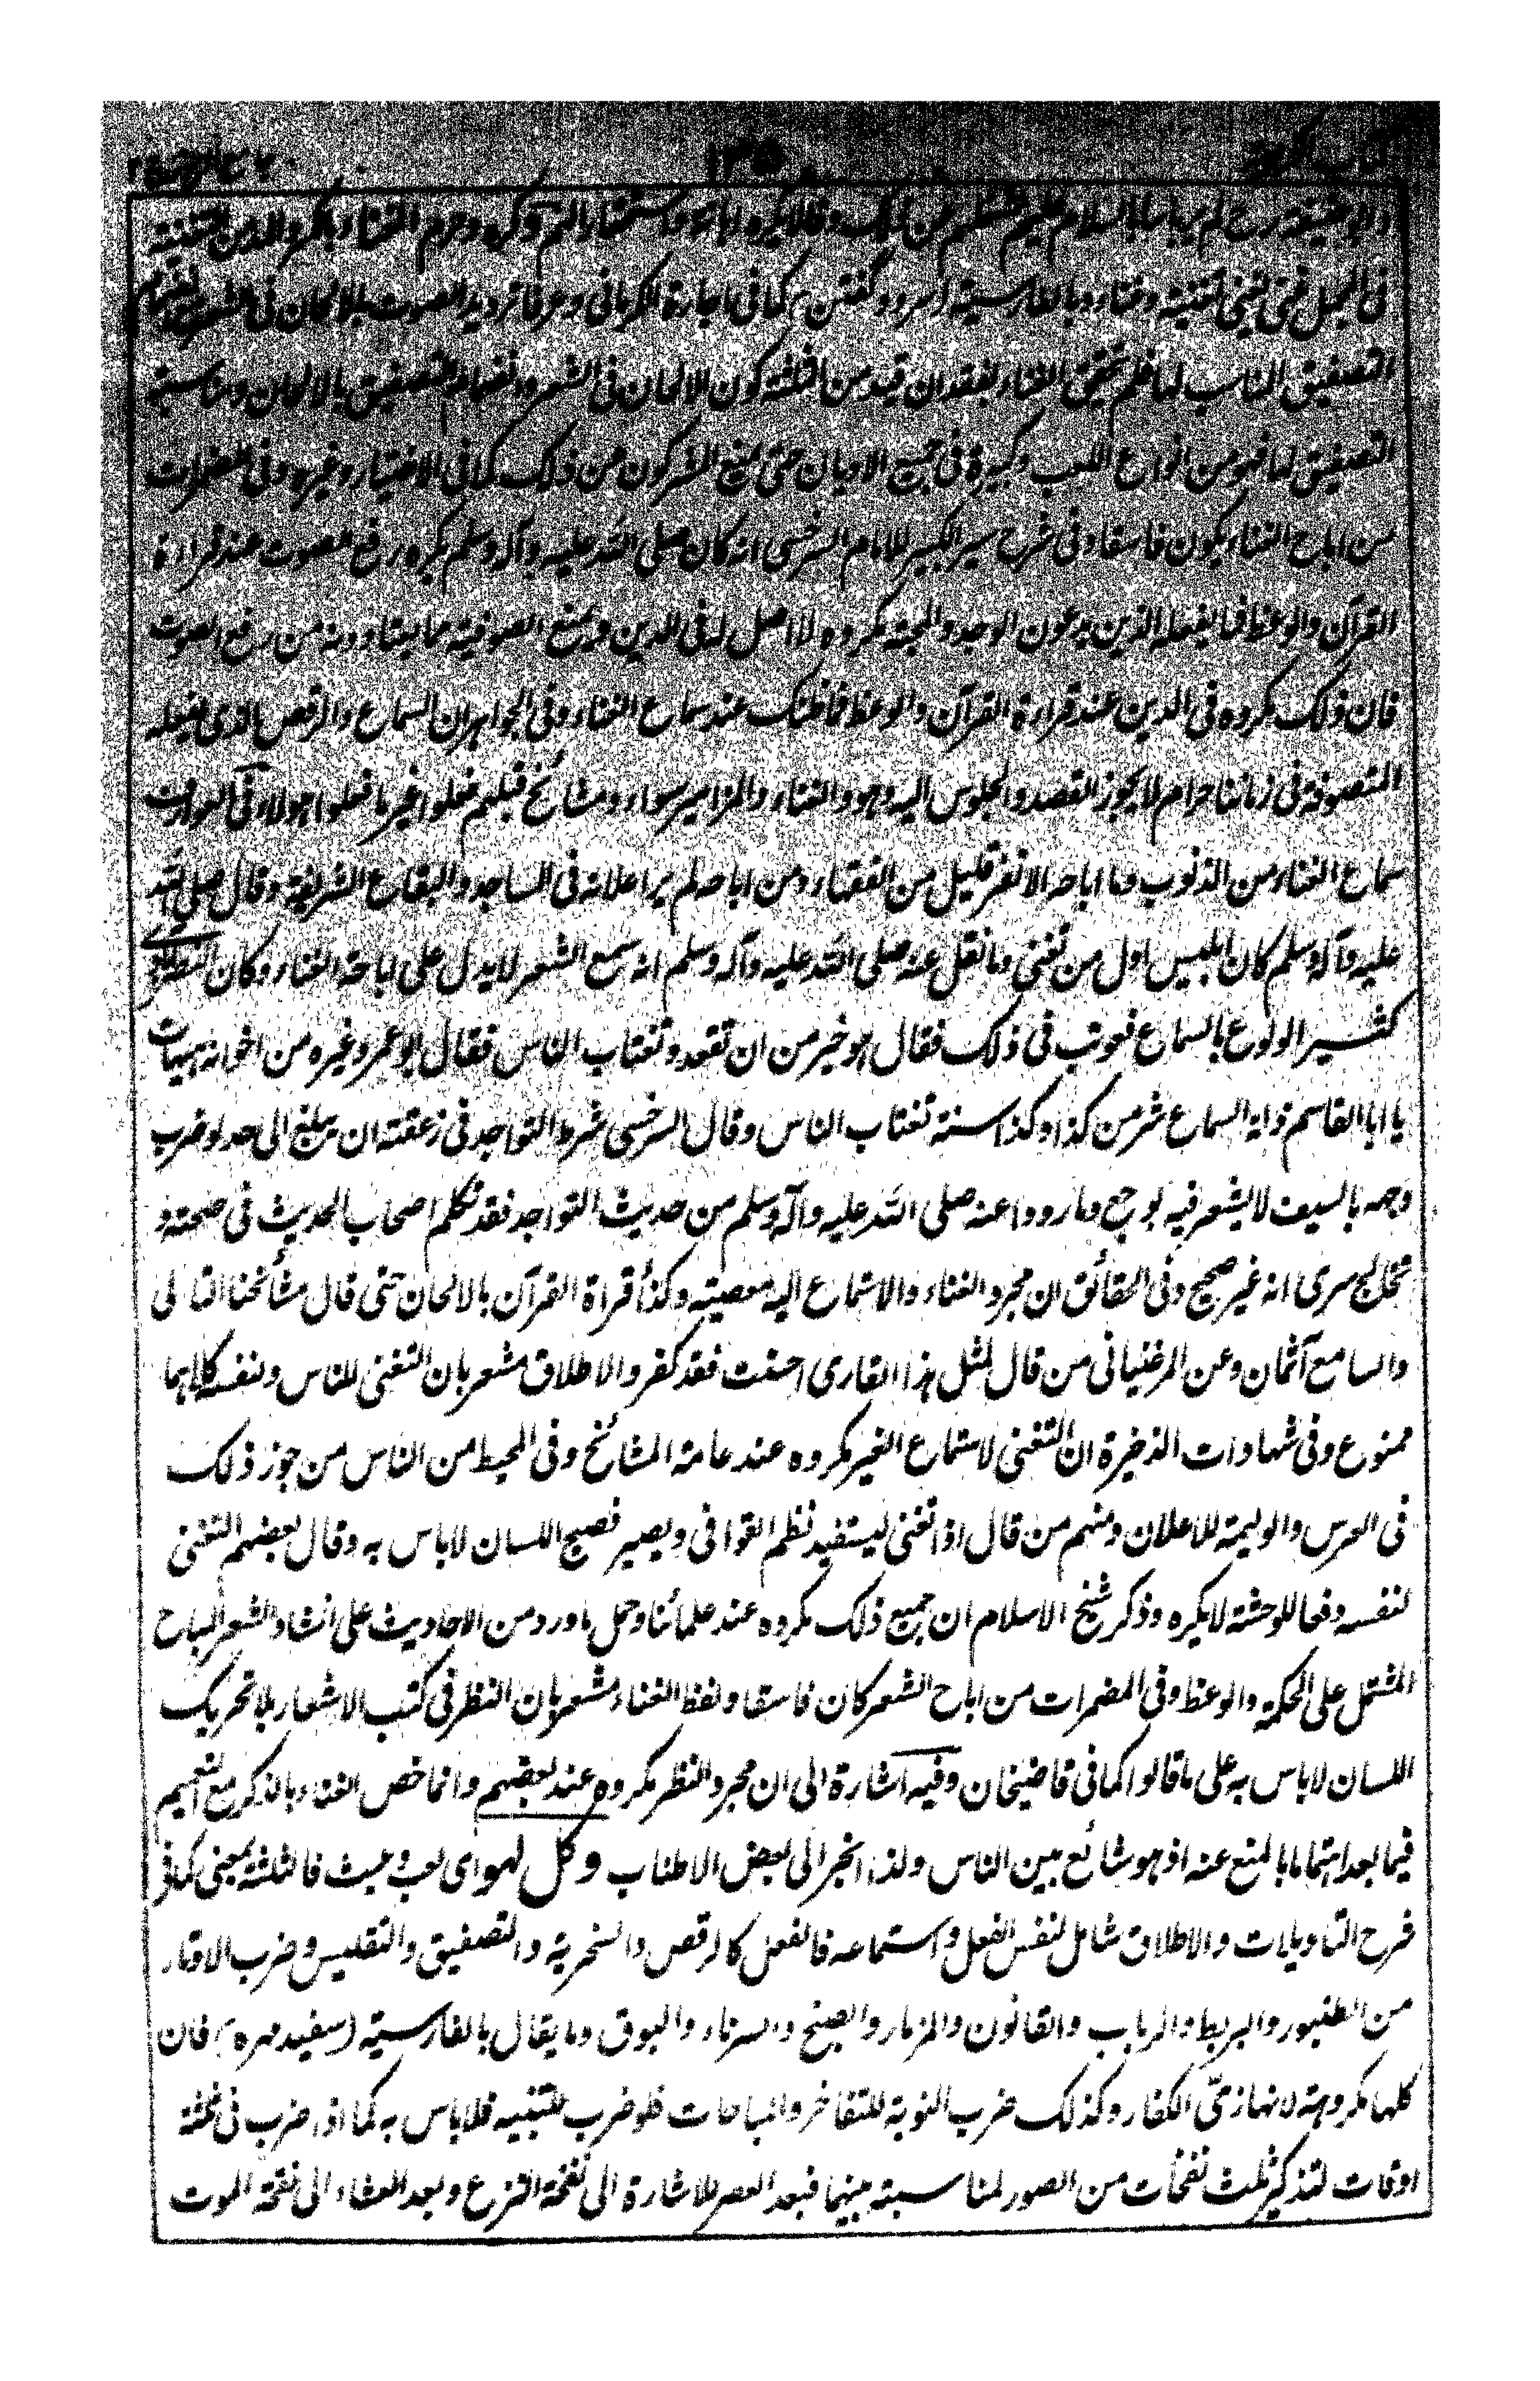 كتاب الكراهية
وابو حنيفة رح لم ير بأسا بالسلام عليهم ليشغلهم عن ذلك وقالا يكره اهانة واستحقارا لهم وكره وحرم الغناء بالكسر والمد من التغنية
فى المجمل غنى يغنى تغنية وغناء وبالفارسية (سرود گفتن) كما فى اجارة الكرمانى وعرفا ترديد الصوت بالالحان فى الشعر مع انضمام
التصفيق المناسب لها فلم يتحقق الغناء بفقدان قيد من الثلثة كون الالحان فى الشعر وانضمام التصفيق بالالحان ومناسبة
التصفيق لها فهو من انواع اللعب وكبيرة فى جميع الاديان حتى يمنع المشركون عن ذلك كما فى الاختيار وغيره وفى المضمرات
من اباح الغناء يكون فاسقا وفى شرح سير الكبير للامام السرخسى انه كان صلى الله عليه وآله وسلم يكره رفع الصوت عند قراءة
القرآن والوعظ فما يفعله الذين يدعون الوجد والمحبة مكروه لا اصل له فى الدين ويمنع الصوفية مما يعتادونه من رفع الصوت
فان ذلك مكروه فى الدين عند قراءة القرآن والوعظ فما ظنك عند سماع الغناء وفى الجواهر ان السماع والرقص الذى يفعله
المتصوفة فى زماننا حرام لا يجوز القصد والجلوس اليه وهو والغناء والمزامير سواء ومشائخ قبلهم فعلوا غير ما فعلوا هولاء وفى العوارف
سماع الغناء من الذنوب وما اباحه الا نفر قليل من الفقهاء ومن اباحه لم ير اعلانه فى المساجد والبقاع الشريفة وقال صلى الله
عليه وآله وسلم كان ابليس اول من تغنى وما نقل عنه صلى الله عليه وآله وسلم انه سمع الشعر لا يدل على اباحة الغناء وكان
كثير الولوع بالسماع فعوتب فى ذلك فقال هو خير من ان تقعد وتغتاب الناس فقال ابو عمرو وغيره من اخوانه هيهات
يا ابا القاسم زلة السماع شر من كذا وكذا سنة تغتاب الناس وقال السرخسى شرط التواجد فى زعقته ان يبلغ الى حد لو ضرب
وجهه بالسيف لا يشعر فيه بوجع وما رووا عنه صلى الله عليه وآله وسلم من حديث التواجد فقد تكلم اصحاب الحديث فى صحته و
تخالج سرى انه غير صحيح وفى الحقائق ان مجرد الغناء والاستماع اليه معصية وكذا قراة القرآن بالالحان حتى قال مشائخنا التالى
والسامع آثمان وعن المرغينانى من قال لمثل هذا القارى احسنت فقد كفر والاطلاق مشعر بان التغنى للناس ولنفسه كلاهما
ممنوع وفى شهادات الذخيرة ان التغنى لاستماع الغير مكروه عند عامة المشائخ وفى المحيط من الناس من جوز ذلك
فى العرس والوليمة للاعلان ومنهم من قال اذا تغنى ليستفيد نظم القوافى ويصير فصيح اللسان لا باس به وقال بعضهم التغنى
لنفسه دفعا للوحشة لا يكره وذكر شيخ الاسلام ان جميع ذلك مكروه عند علمائنا وحمل ما ورد من الاحاديث على انشاد الشعر المباح
المشتمل على الحكمة والوعظ وفى المضمرات من اباح الشعر كان فاسقا ولفظ الغناء مشعر بان النظر فى كتب الاشعار بلا تحريك
اللسان لا باس به على ما قالوا كما فى قاضيخان وفيه اشارة الى ان مجرد النظر مكروه عند بعضهم وانما خص الغناء بالذكر مع التعميم
فيما بعد اهتماما بالمنع عنه اذ هو شائع بين الناس ولذا انجر الى بعض الاطناب وكل لهو اى لعب وعبث فالثلثة بمعنى كما فى
شرح التاويلات والاطلاق شامل لنفس الفعل واستماعه فالفعل كالرقص والسخرية والتصفيق والتقليس وضرب الاوتار
من الطنبور والبربط والرباب والقانون والمزمار والصنج والسرناء والبوق وما يقال بالفارسية (سفيد مهره) فان
كلها مكروهة لانها زىّ الكفار وكذلك ضرب النوبة للتفاخر والمباهات فلو ضرب للتنبيه فلا باس به كما اذا ضرب فى ثلثة
اوقات لتذكير ثلث نفخات من الصور لمناسبة بينهما فبعد العصر للاشارة الى نفخة الفزع وبعد العشاء الى نفخة الموت